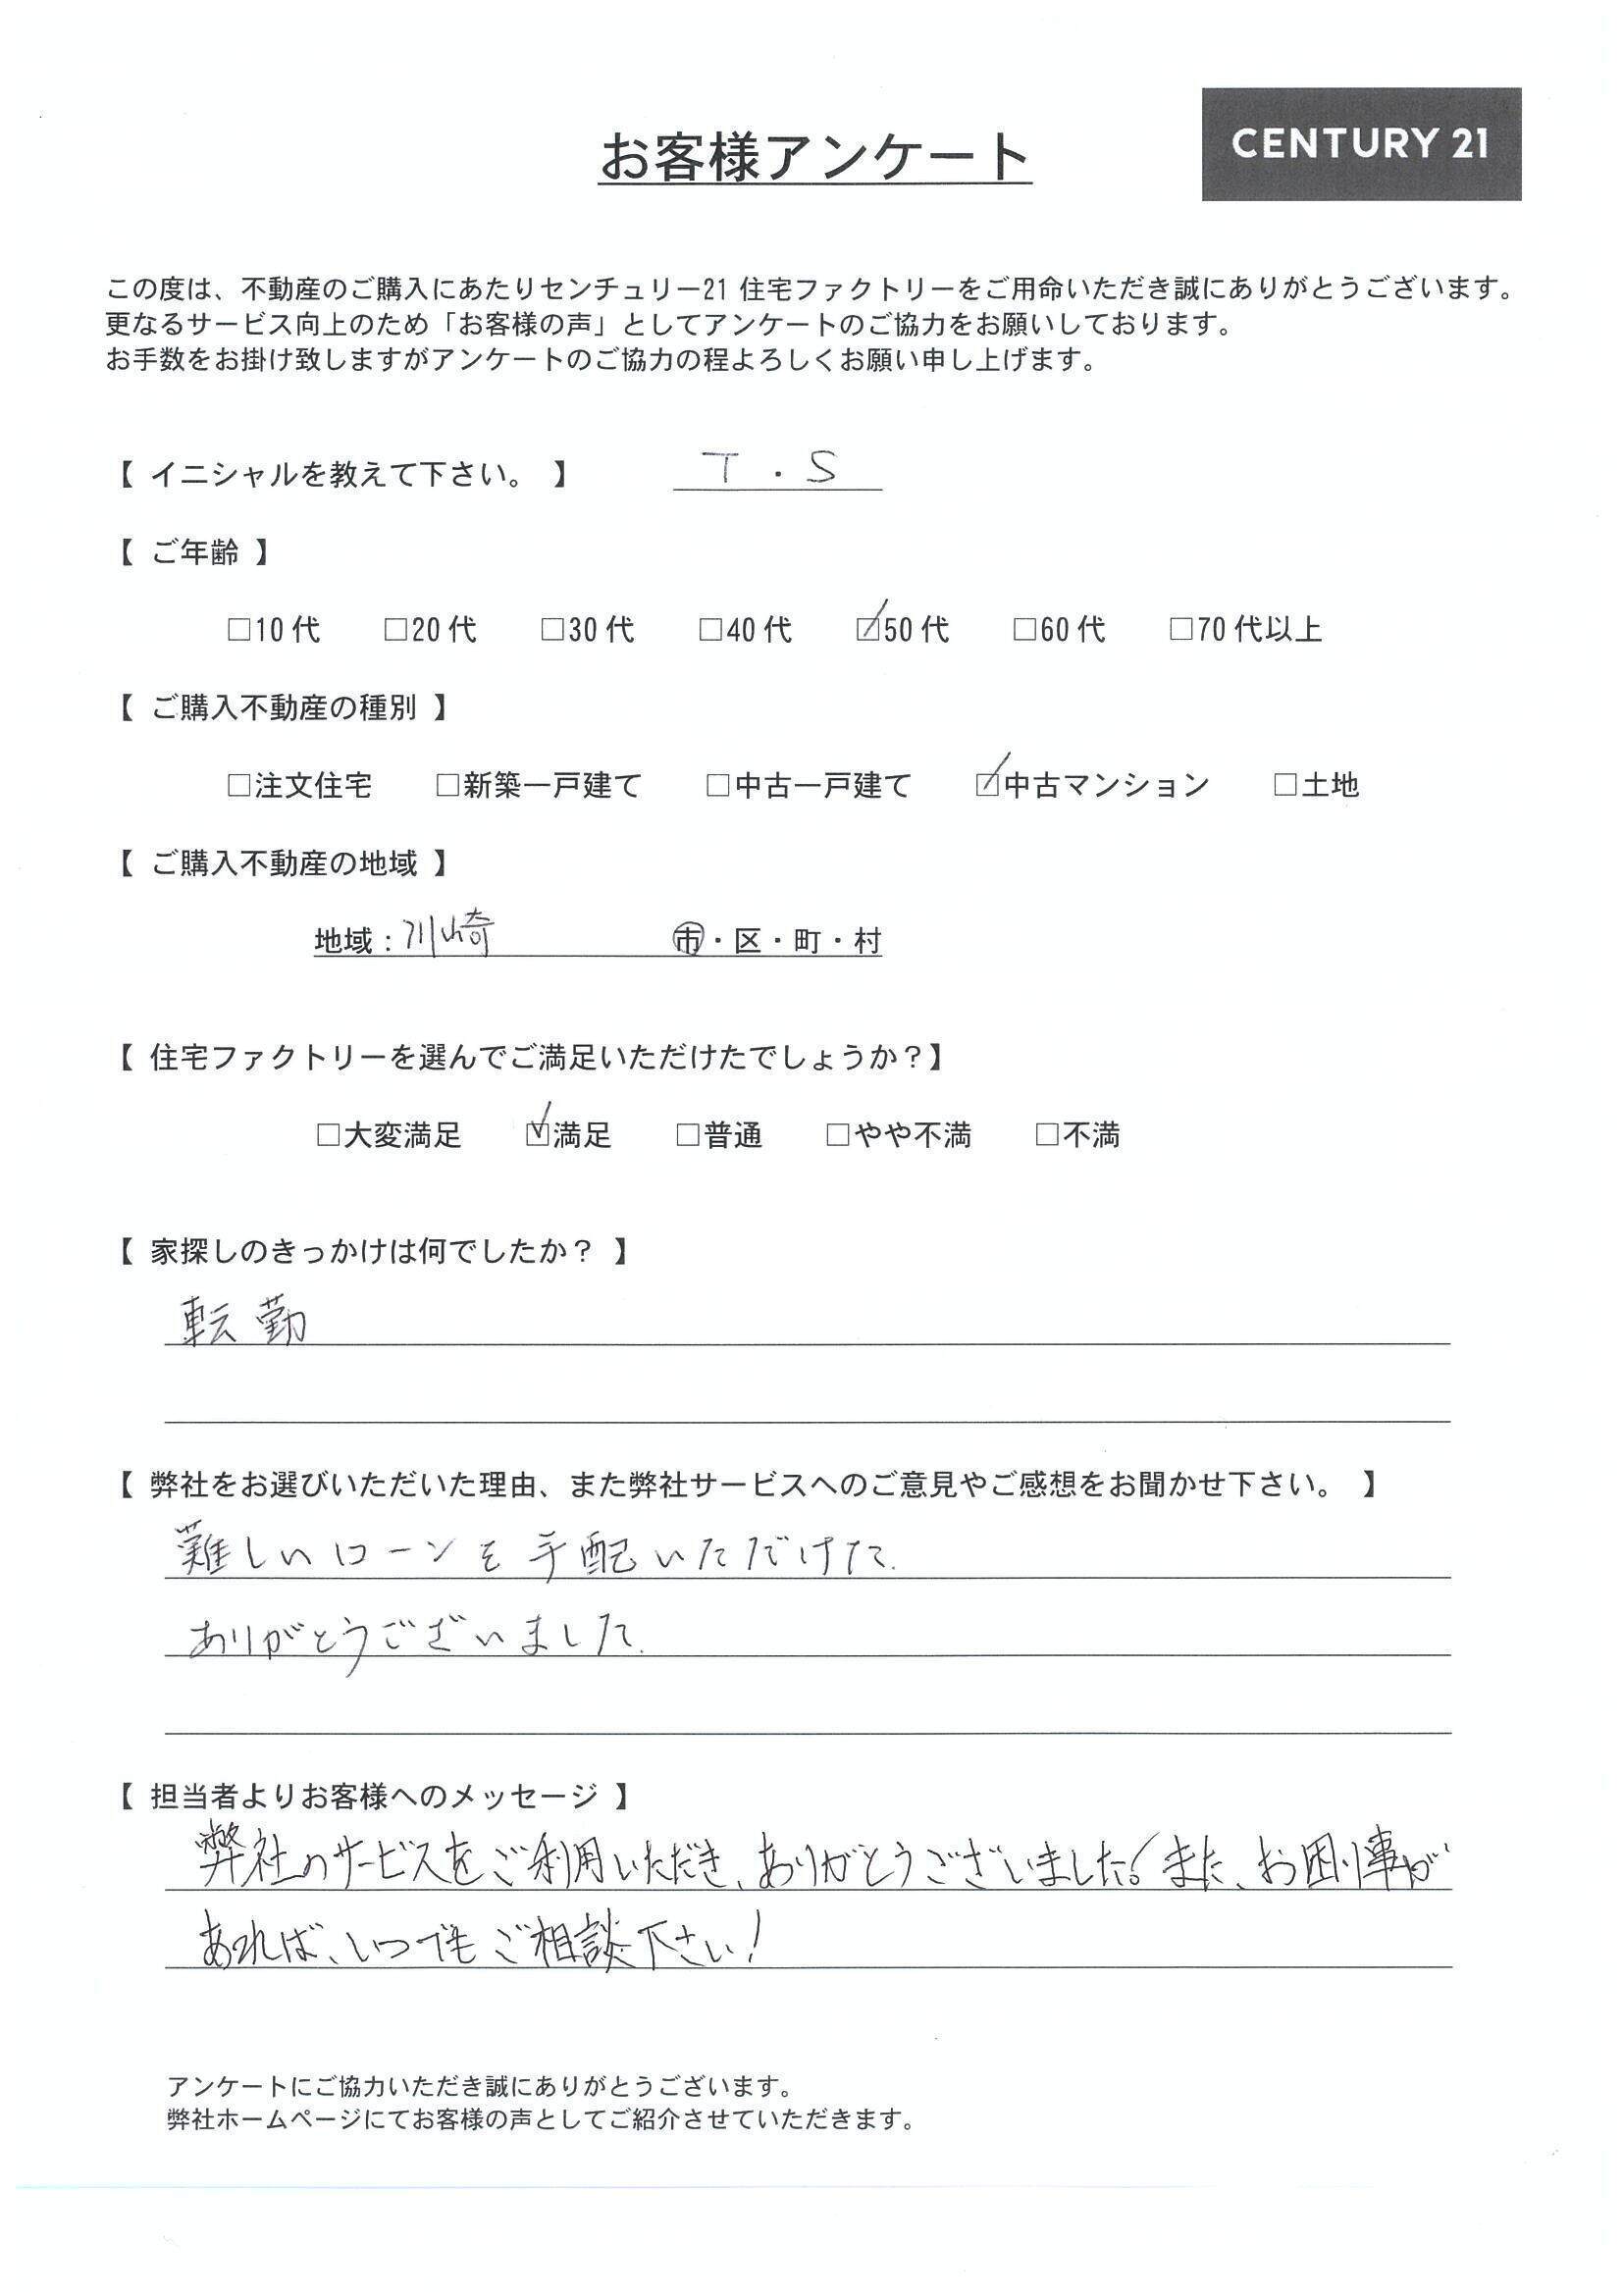 お客様アンケート
CENTURY 21
この度は、不動産のご購入にあたりセンチュリー21 住宅ファクトリーをご用命いただき誠にありがとうございます。
更なるサービス向上のため「お客様の声」としてアンケートのご協力をお願いしております。
お手数をお掛け致しますがアンケートのご協力の程よろしくお願い申し上げます。
【 イニシャルを教えて下さい。 】 T・S
【 ご年齢 】
□10代 □20代 □30代 □40代 ☑50代 □60代 □70代以上
【 ご購入不動産の種別 】
□注文住宅 □新築一戸建て □中古一戸建て ☑中古マンション □土地
【 ご購入不動産の地域 】
地域：川崎 市・区・町・村
【 住宅ファクトリーを選んでご満足いただけたでしょうか？】
□大変満足 ☑満足 □普通 □やや不満 □不満
【 家探しのきっかけは何でしたか？ 】
転勤
【 弊社をお選びいただいた理由、また弊社サービスへのご意見やご感想をお聞かせ下さい。 】
難しいローンを手配いただけた.
ありがとうございました.
【 担当者よりお客様へのメッセージ 】
弊社のサービスをご利用いただき、ありがとうございました！また、お困り事が
あれば、いつでもご相談下さい！
アンケートにご協力いただき誠にありがとうございます。
弊社ホームページにてお客様の声としてご紹介させていただきます。